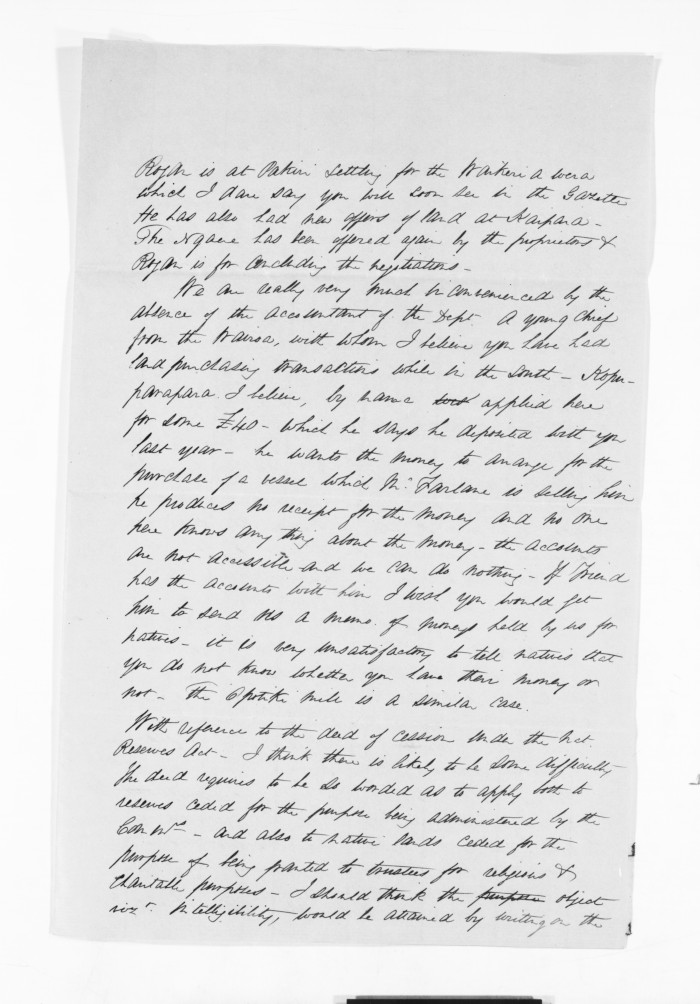 Rogan is at Pakiri settling for the Waikeri a wera
which I dare say you will soon see in the Gazette
He has also had new offers of land at Kaipara -
The Ngaere has been offered again by the proprietors &
Rogan is for concluding the negotiations -
We are really very much inconvenienced by the
absence of the accountant of the Dept. A young Chief
from the Wairoa, with whom I believe you have had
land purchasing transactions while in the South - Kopu-
parapara I believe, by name applied here
for some £40 - which he says he deposited with you
last year - he wants the money to arrange for the
purchase of a vessel which McFarlane is selling him
he produces no receipt for the money and no one
here knows any thing about the money - the accounts
are not accessible and we can do nothing - If Friend
has the accounts with him I wish you would get
him to send us a memo. of moneys held by us for
natives - it is very unsatisfactory to tell natives that
you do not know whether you have their money or
not - The Opotiki mill is a similar case.
With reference to the deed of cession under the Nat.
Reserves Act - I think there is likely to be some difficulty
The deed requires to be so worded as to apply both to
reserves ceded for the purpose being administered by the
Comrs - and also to native lands ceded for the
purpose of being granted to trustees for religious &
Charitable purposes - I should think the purpose object
vizt. intelligibility, would be attained by writing on the